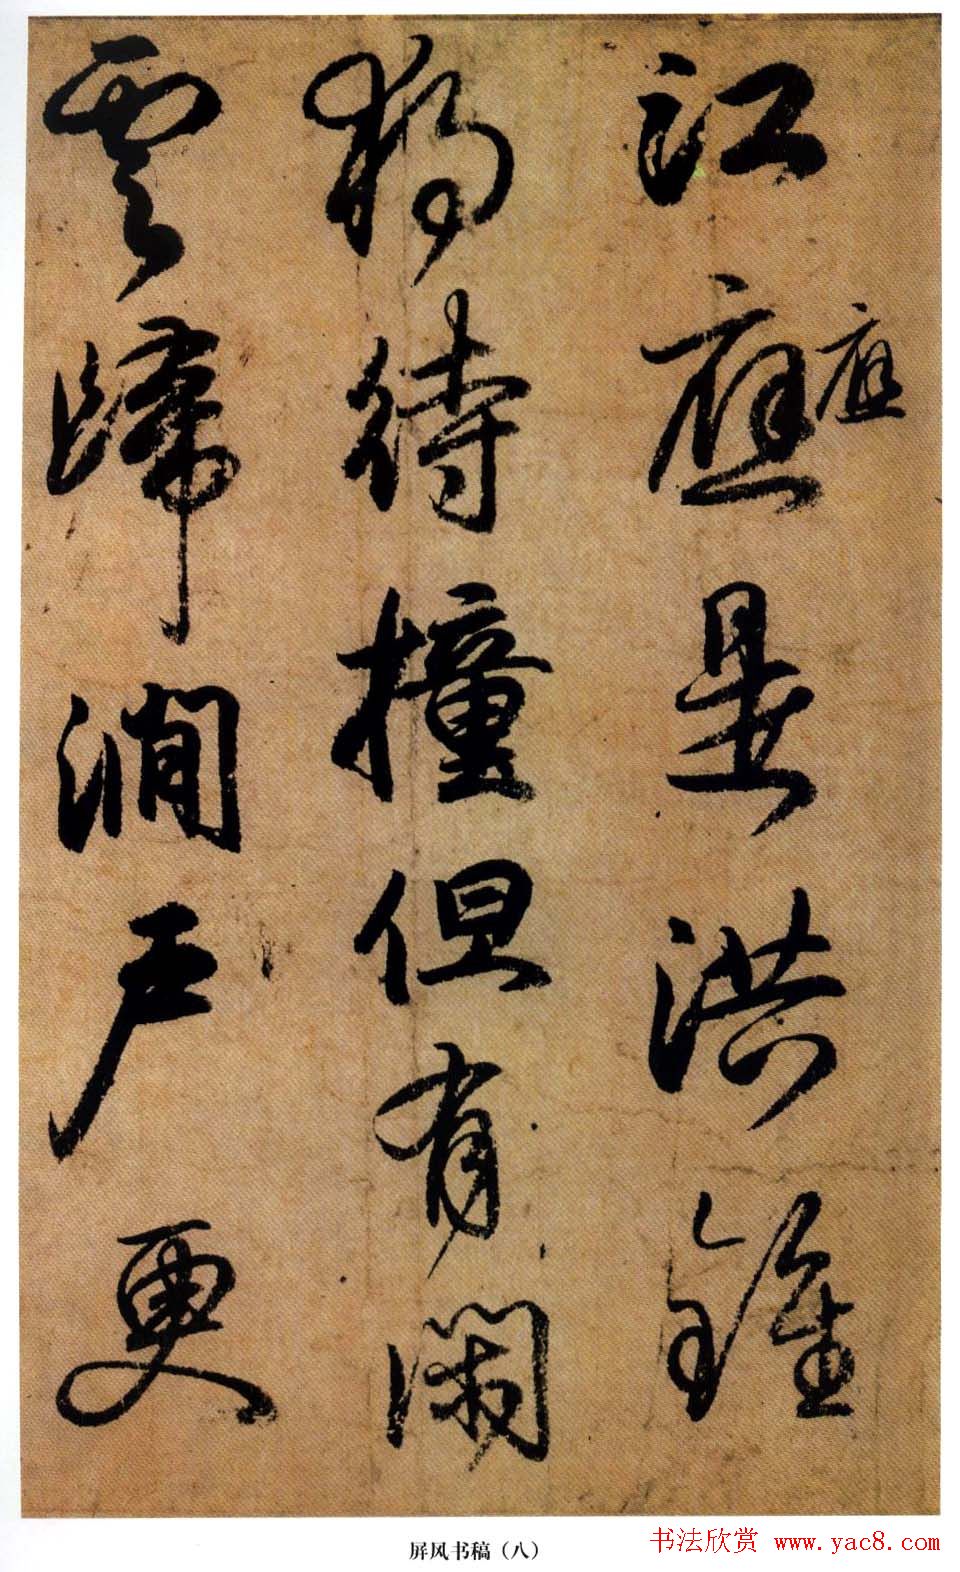 江應是洪鐘
應
猶待撞但有閑
雲歸澗戶更
屏风书稿（八）
书法欣赏 www.yac8.com